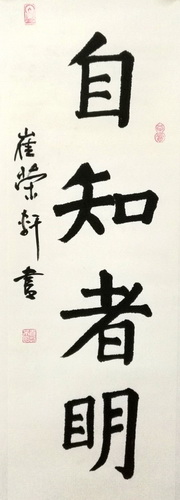 自知者明
崔荣轩书